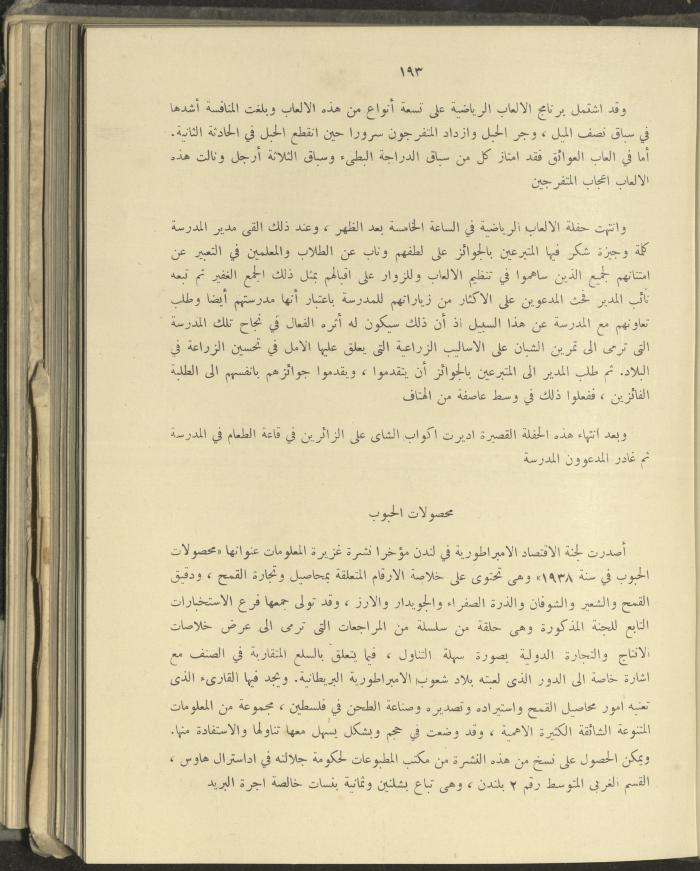 ١٩٣
وقد اشتمل برنامج الالعاب الرياضية على تسعة أنواع من هذه الالعاب وبلغت المنافسة أشدها
في سباق نصف الميل ، وجر الحبل وازداد المتفرجون سرورا حين انقطع الحبل في الحادثة الثانية.
أما في العاب العوائق فقد امتاز كل من سباق الدراجة البطىء وسباق الثلاثة أرجل ونالت هذه
الالعاب اعجاب المتفرجين
وانتهت حفلة الالعاب الرياضية في الساعة الخامسة بعد الظهر ، وعند ذلك القى مدير المدرسة
كلمة وجيزة شكر فيها المتبرعين بالجوائز على لطفهم وناب عن الطلاب والمعلمين في التعبير عن
امتنانهم لجميع الذين ساهموا في تنظيم الالعاب وللزوار على اقبالهم بمثل ذلك الجمع الغفير ثم تبعه
نائب المدير فحث المدعوين على الاكثار من زياراتهم للمدرسة باعتبار أنها مدرستهم أيضا وطلب
تعاونهم مع المدرسة عن هذا السبيل اذ أن ذلك سيكون له أثره الفعال في نجاح تلك المدرسة
التى ترمى الى تمرين الشبان على الاساليب الزراعية التى يعلق عليها الامل في تحسين الزراعة في
البلاد. ثم طلب المدير الى المتبرعين بالجوائز أن يتقدموا ، ويقدموا جوائزهم بانفسهم الى الطلبة
الفائزين ، ففعلوا ذلك في وسط عاصفة من الهتاف
وبعد انتهاء هذه الحفلة القصيرة اديرت اكواب الشاى على الزائرين في قاعة الطعام في المدرسة
ثم غادر المدعوون المدرسة
محصولات الحبوب
أصدرت لجنة الاقتصاد الامبراطورية في لندن مؤخرا نشرة غزيرة المعلومات عنوانها «محصولات
الحبوب في سنة ١٩٣٨» وهى تحتوى على خلاصة الارقام المتعلقة بمحاصيل وتجارة القمح ، ودقيق
القمح والشعير والشوفان والذرة الصفراء والجويدار والارز ، وقد تولى جمعها فرع الاستخبارات
التابع للجنة المذكورة وهى حلقة من سلسلة من المراجعات التى ترمى الى عرض خلاصات
الانتاج والتجارة الدولية بصورة سهلة التناول ، فيما يتعلق بالسلع المتقاربة في الصنف مع
اشارة خاصة الى الدور الذى لعبته بلاد شعوب الامبراطورية البريطانية. ويجد فيها القارىء الذى
تعنيه أمور محاصيل القمح واستيراده وتصديره وصناعة الطحن في فلسطين ، مجموعة من المعلومات
المتنوعة الشائقة الكثيرة الاهمية ، وقد وضعت في حجم وبشكل يسهل معها تناولها والاستفادة منها.
ويمكن الحصول على نسخ من هذه النشرة من مكتب المطبوعات لحكومة جلالته في اداسترال هاوس ،
القسم الغربى المتوسط رقم ٢ بلندن ، وهى تباع بشلنين وثمانية بنسات خالصة اجرة البريد